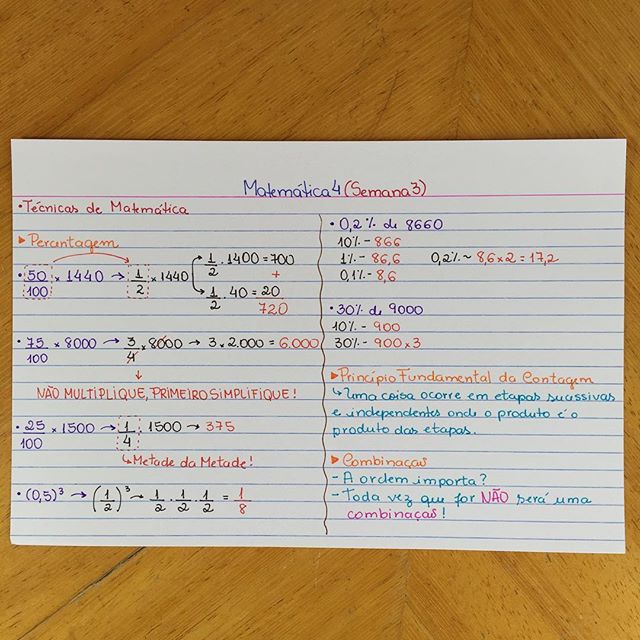 Matemática 4 (Semana 3)
•Técnicas de Matemática
▸ Percentagem
• 50/100 × 1440 → 1/2 × 1440
1/2 . 1400 = 700
+
1/2 . 40 = 20
720
• 75/100 × 8000 → 3/4 × 8000 → 3 × 2.000 = 6.000
↓
NÃO MULTIPLIQUE, PRIMEIRO SIMPLIFIQUE!
• 25/100 × 1500 → 1/4 1500 → 375
↳ Metade da Metade!
• (0,5)³ → (1/2)³ → 1/2 . 1/2 . 1/2 = 1/8
• 0,2% de 8660
10% - 866
1% - 86,6 0,2% ~ 8,6 × 2 = 17,2
0,1% - 8,6
• 30% de 9000
10% - 900
30% - 900 × 3
▸ Princípio Fundamental da Contagem
↳ Uma coisa ocorre em etapas sucessivas
e independentes onde o produto é o
produto das etapas.
▸ Combinação
- A ordem importa?
- Toda vez que for NÃO será uma
combinação!